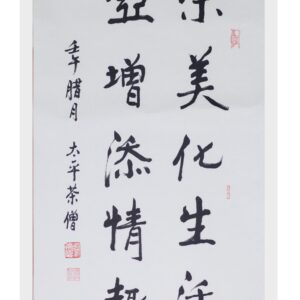 茶美化生活
壶增添情趣
壬午腊月 太平茶僧